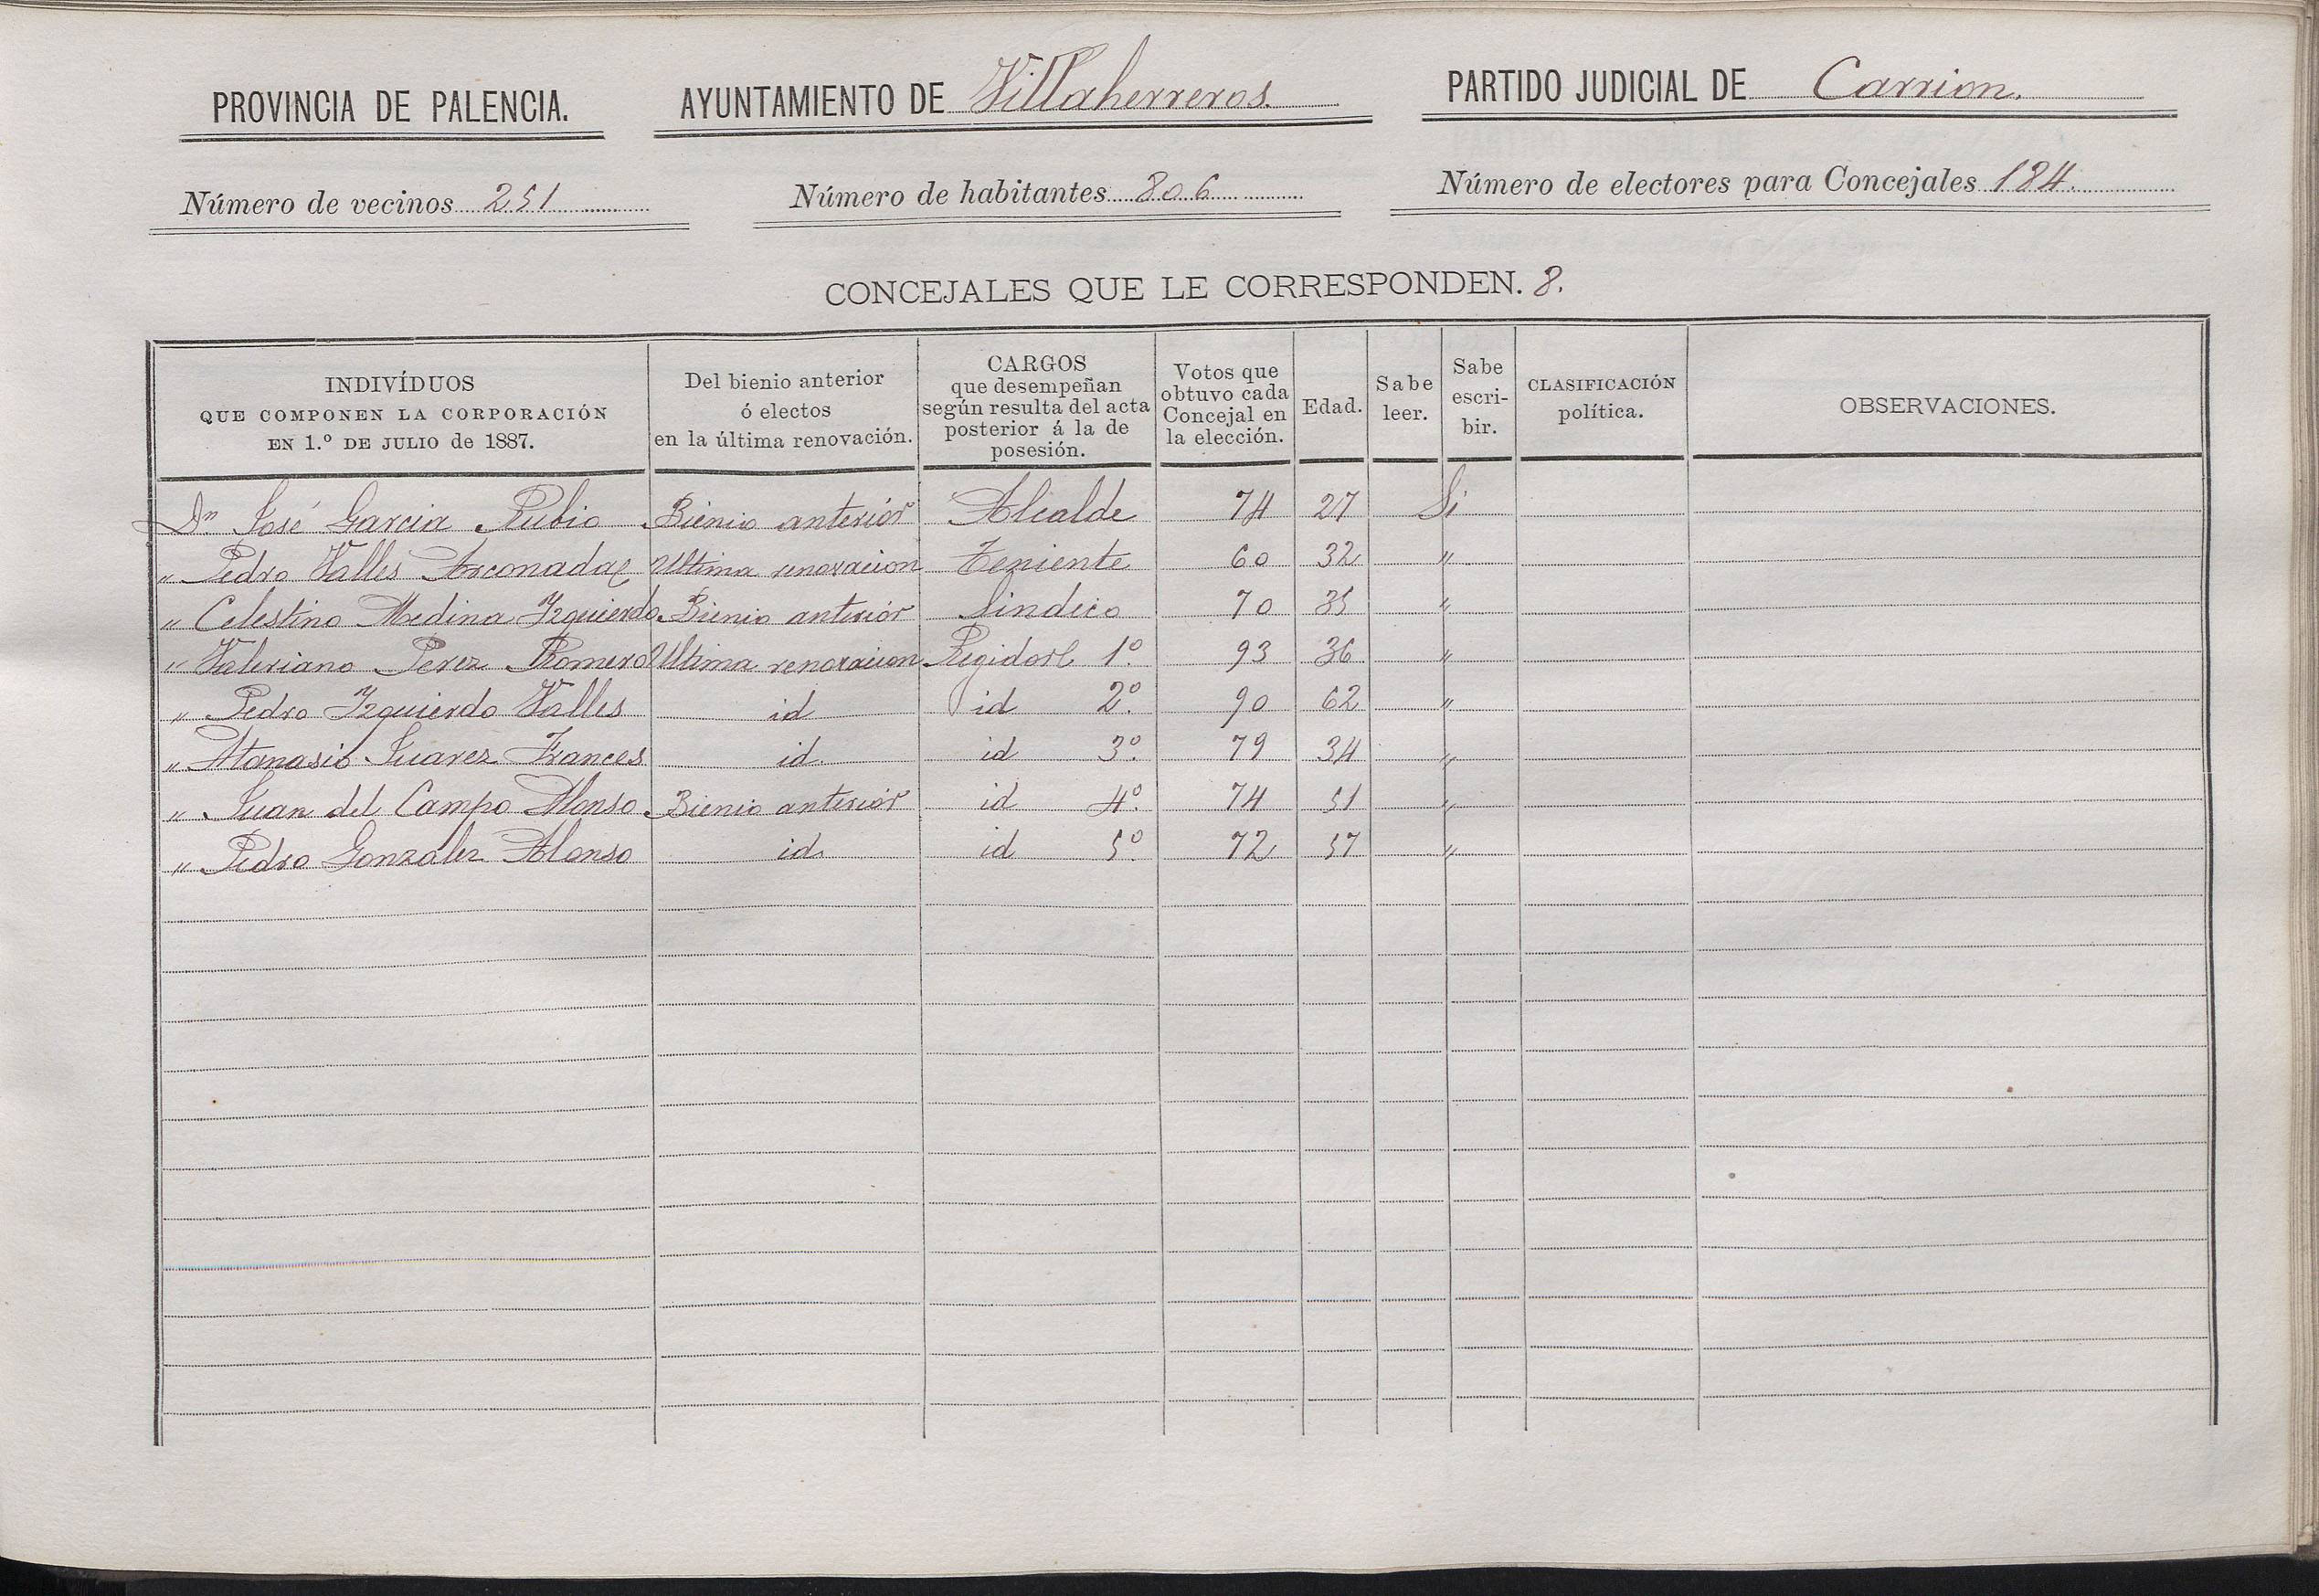 PROVINCIA DE PALENCIA. AYUNTAMIENTO DE Villaherreros. PARTIDO JUDICIAL DE Carrion.
Número de vecinos 251 Número de habitantes 806 Número de electores para Concejales 184.
CONCEJALES QUE LE CORRESPONDEN. 8.
INDIVÍDUOS
QUE COMPONEN LA CORPORACIÓN
EN 1.º DE JULIO de 1887.
Del bienio anterior
ó electos
en la última renovación.
CARGOS
que desempeñan
según resulta del acta
posterior á la de
posesión.
Votos que
obtuvo cada
Concejal en
la elección.
Edad.
Sabe
leer.
Sabe
escri-
bir.
CLASIFICACIÓN
política.
OBSERVACIONES.
Dn José Garcia Rubio Bienio anterior Alcalde 74 27 Si
" Pedro Valles Arconada Ultima renovacion Teniente 60 32 "
" Celestino Medina Izquierdo Bienio anterior Sindico 70 35 "
" Valeriano Perez Romero Ultima renovacion Regidor 1º. 93 36 "
" Pedro Izquierdo Valles id id 2º. 90 62 "
" Atanasio Suarez Frances id. id 3º. 79 34 "
" Juan del Campo Alonso Bienio anterior id 4º. 74 51 "
" Pedro Gonzalez Alonso id id 5º. 72 57 "